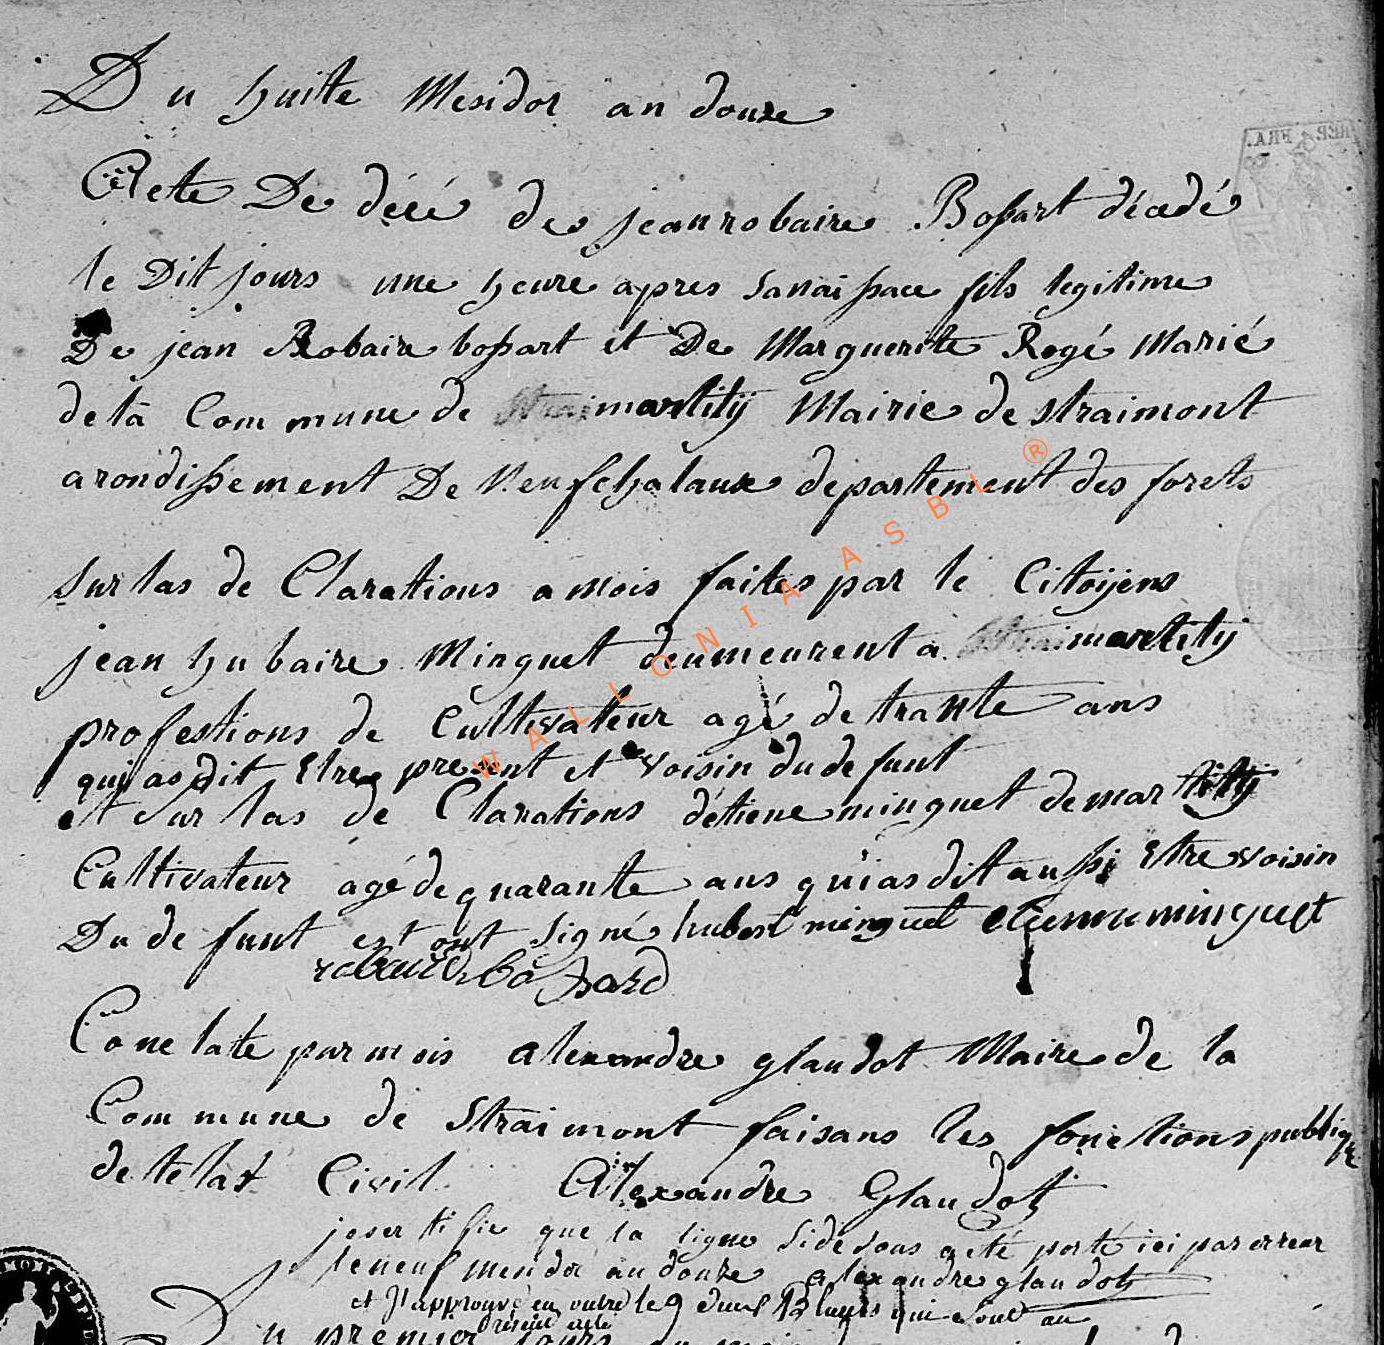 Du huite Mesidor an douze
Acte De décé de jean robaire Bossart décédé
le Dit jours une heure apres sanaissace fils legitime
De jean Robaire bossart et De Marguerite Rogé Marié
de la Commune de martilij Mairie de straimont
arondissement De Neufchataux departement des forets
sur las de Clarations a mois faites par le Citoijens
jean hubaire Minguet deumeurent a martilij
profestions de Cultivateur agé de trante ans
qui as dit Etre present et voisin du defunt
et sur las de Clarations détiene minguet de martilij
Cultivateur agé de quarante ans qui as dit aussi Etre voisin
Du de funt est ont signé hubert minguet etienne minguet
robaire bossard
Conctaté par mois alexandre glaudot Maire de la
Commune de straimont faisans les fonctions publique
de letat Civil Alexandre Glaudot
je sertifie que la ligne sidesous a été porté ici par erreur
le neuf mesidor an douze alexandre glaudot
et J'approuve en outre le 9 qui sont au
présent acte
Du premier jours du mois
WALLONIA ASBL ®
REP. FRA.